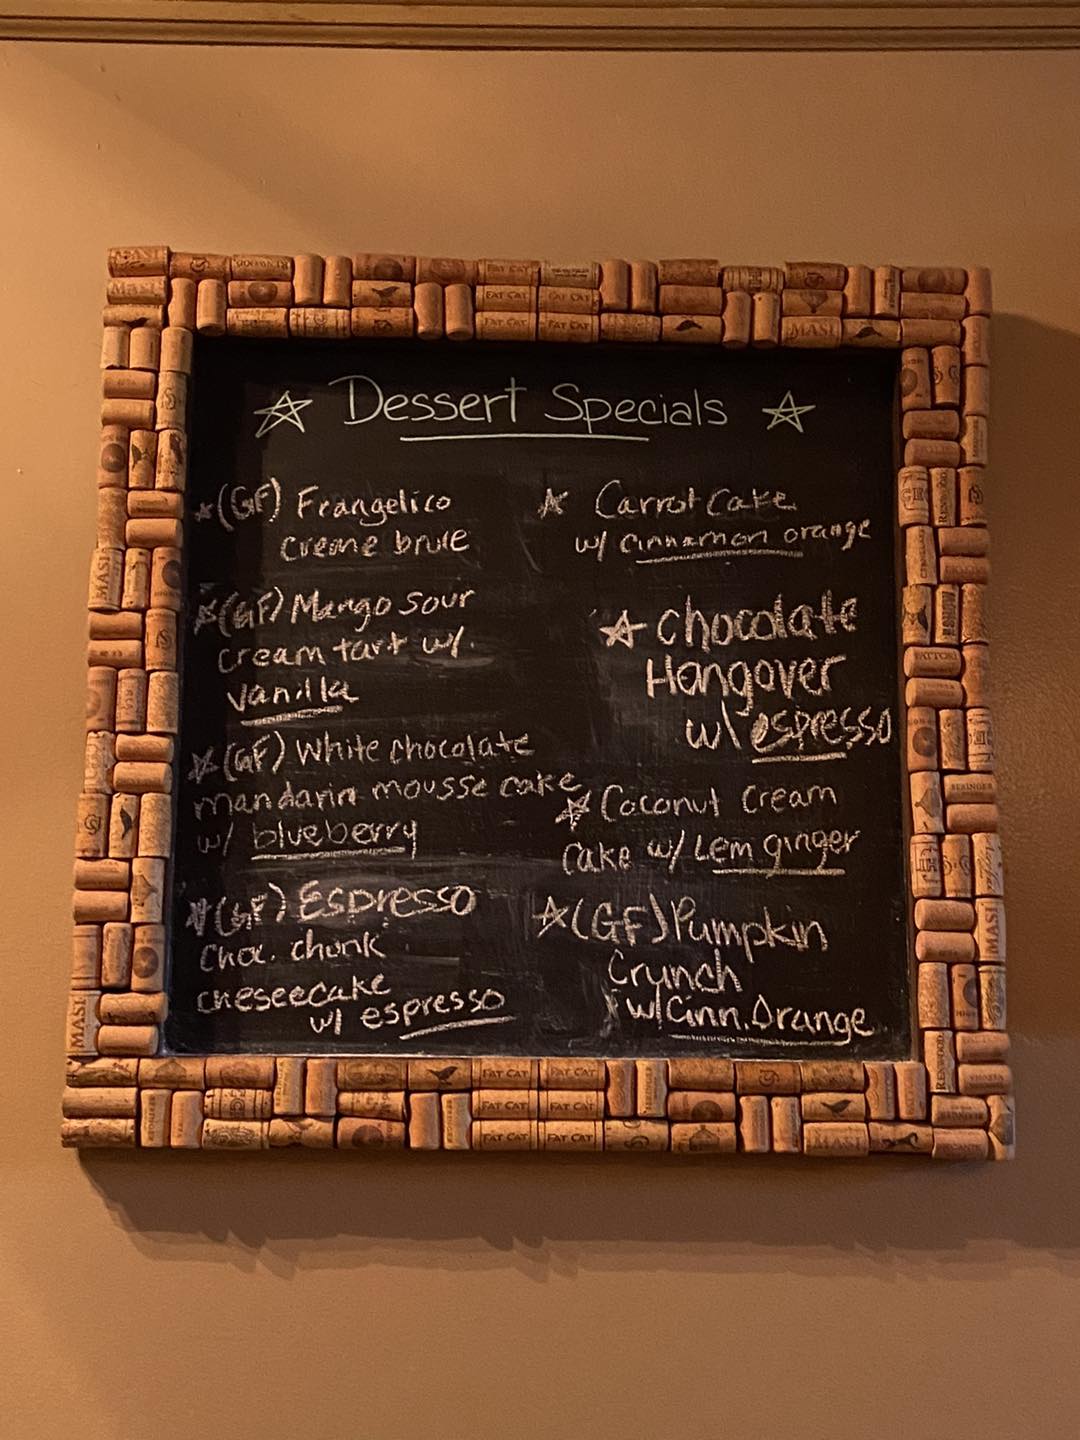 Dessert Specials
(GF) Frangelico
creme brule
(GF) Mango Sour
cream tart w/.
vanilla
(GF) White chocolate
mandarin mousse cake
w/ blueberry
(GF) Espresso
Choc. chunk
cheseecake
w/ espresso
Carrot Cake
w/ cinnamon orange
Chocolate
Hangover
w/ espresso
Coconut Cream
Cake w/ Lem ginger
(GF) Pumpkin
Crunch
w/ Cinn. Orange
MASI
FAT CAT
FAT CAT
FAT CAT
FAT CAT
FAT CAT
MASI
MASI
MASI
MASI
FAT CAT
FAT CAT
FAT CAT
FAT CAT
FAT CAT
FAT CAT
MASI